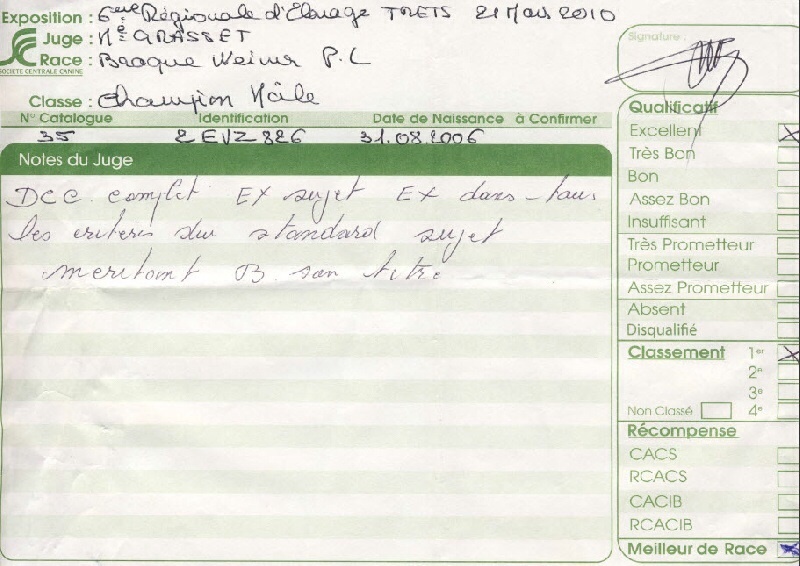 Exposition : 6ème Régionale d'Elevage TRETS 21 Mars 2010
Juge : Me GRASSET
Race : Braque Weimar P.C
SOCIETE CENTRALE CANINE
Classe : Champion Mâle
N° Catalogue Identification Date de Naissance à Confirmer
35 2EVZ826 31.08.2006
Notes du Juge
DCC complet EX sujet EX dans tous
les criteres du standard sujet
meritant B. son titre
Signature :
Qualificatif
Excellent X
Très Bon
Bon
Assez Bon
Insuffisant
Très Prometteur
Prometteur
Assez Prometteur
Absent
Disqualifié
Classement 1er X
2e
3e
Non Classé 4e
Récompense
CACS
RCACS
CACIB
RCACIB
Meilleur de Race X